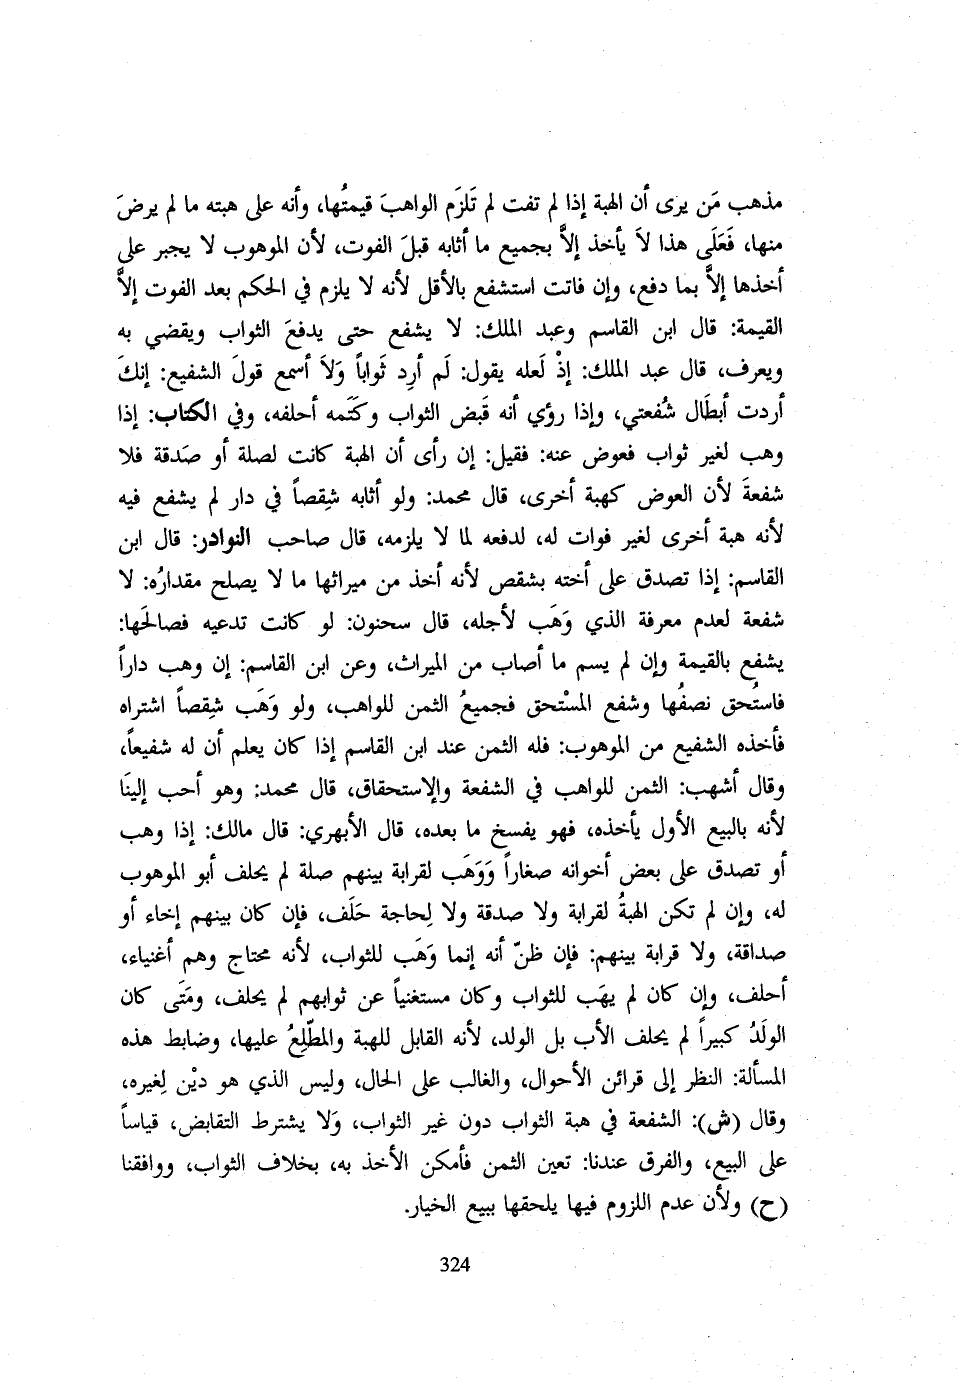 مذهب مَن يرى أن الهبة إذا لم تفت لم تَلزَم الواهبَ قيمتُها، وأنه على هبته ما لم يرضَ
منها، فَعَلَى هذا لاَ يأخذ إلاَّ بجميع ما أثابه قبلَ الفوت، لأن الموهوب لا يجبر على
أخذها إلاَّ بما دفع، وإن فاتت استشفع بالأقل لأنه لا يلزم في الحكم بعد الفوت إلاَّ
القيمة: قال ابن القاسم وعبد الملك: لا يشفع حتى يدفعَ الثواب ويقضي به
ويعرف، قال عبد الملك: إذْ لَعله يقول: لَم أرِد ثَواباً وَلاَ أسمع قولَ الشفيع: إنكَ
أردت أبطَال شُفعتي، وإذا رؤي أنه قَبض الثواب وكَتَمه أحلفه، وفي الكتاب: إذا
وهب لغير ثواب فعوض عنه: فقيل: إن رأى أن الهبة كانت لصلة أو صَدقة فلا
شفعةَ لأن العوض كهبة أخرى، قال محمد: ولو أثابه شِقصاً في دار لم يشفع فيه
لأنه هبة أخرى لغير فوات له، لدفعه لما لا يلزمه، قال صاحب النوادر: قال ابن
القاسم: إذا تصدق على أخته بشقص لأنه أخذ من ميراثها ما لا يصلح مقدارُه: لا
شفعة لعدم معرفة الذي وَهَب لأجله، قال سحنون: لو كانت تدعيه فصالحَها:
يشفع بالقيمة وإن لم يسم ما أصاب من الميراث، وعن ابن القاسم: إن وهب داراً
فاستُحق نصفُها وشفع المسْتحق فجميعُ الثمن للواهب، ولو وَهَب شِقصاً اشتراه
فأخذه الشفيع من الموهوب: فله الثمن عند ابن القاسم إذا كان يعلم أن له شفيعاً،
وقال أشهب: الثمن للواهب في الشفعة والاستحقاق، قال محمد: وهو أحب إلينَا
لأنه بالبيع الأول يأخذه، فهو يفسخ ما بعده، قال الأبهري: قال مالك: إذا وهب
أو تصدق على بعض أخوانه صغاراً وَوَهَب لقرابة بينهم صلة لم يحلف أبو الموهوب
له، وإن لم تكن الهبةُ لقرابة ولا صدقة ولا لِحاجة حَلَف، فإن كان بينهم إخاء أو
صداقة، ولا قرابة بينهم: فإن ظنّ أنه إنما وَهَب للثواب، لأنه محتاج وهم أغنياء،
أحلف، وإن كان لم يهَب للثواب وكان مستغنياً عن ثوابهم لم يحلف، ومَتَى كان
الولَدُ كبيراً لم يحلف الأب بل الولد، لأنه القابل للهبة والمطّلِعُ عليها، وضابط هذه
المسألة: النظر إلى قرائن الأحوال، والغالب على الحال، وليس الذي هو ديْن لِغيره،
وقال (ش): الشفعة في هبة الثواب دون غير الثواب، وَلا يشترط التقابض، قياساً
على البيع، والفرق عندنا: تعين الثمن فأمكن الأخذ به، بخلاف الثواب، ووافقنا
(ح) ولأن عدم اللزوم فيها يلحقها ببيع الخيار.
324